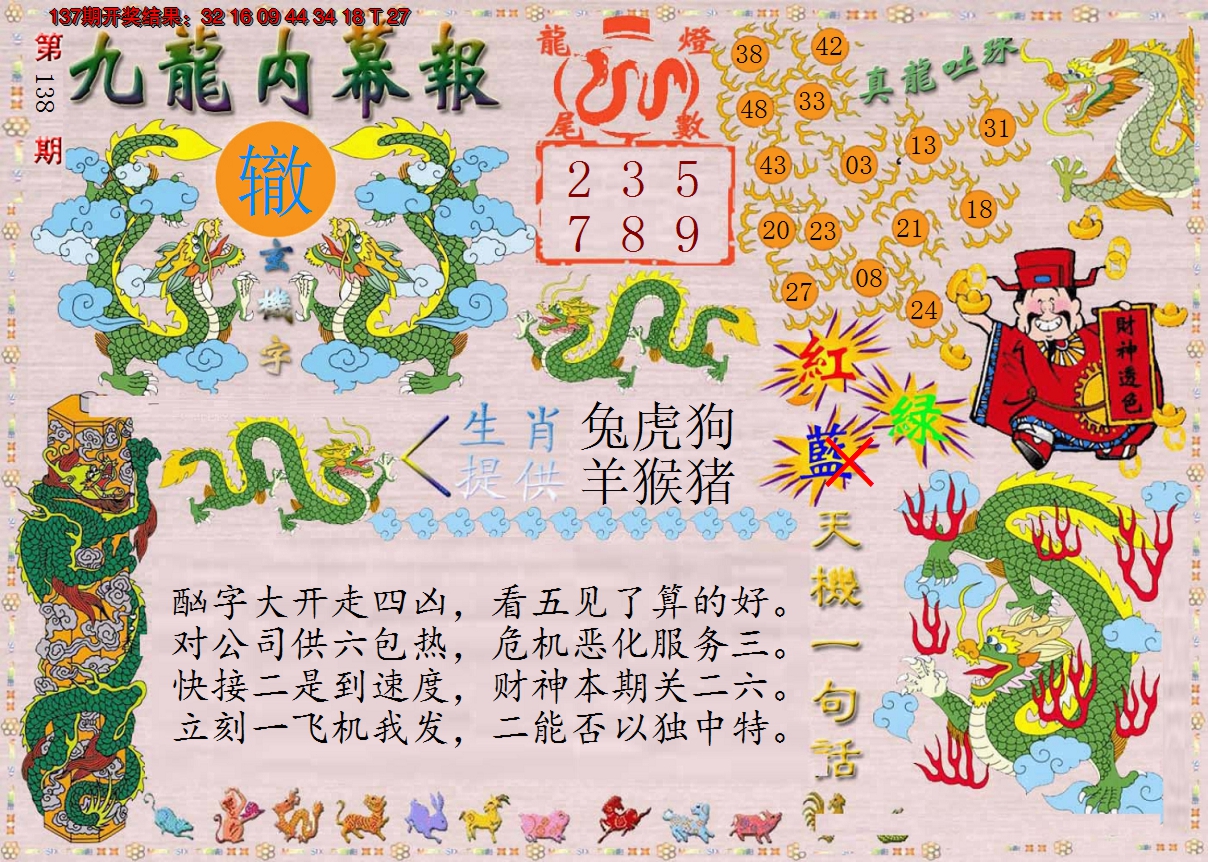 137期开奖结果：32 16 09 44 34 18 T 27
第138期
九龍内幕報
辙
玄機字
龍燈
尾數
2 3 5
7 8 9
真龍吐珠
38 42
48 33
43 03 13 31
20 23 21 18
27 08 24
紅
綠
藍
財神透色
生肖 兔虎狗
提供 羊猴猪
酗字大开走四凶，看五见了算的好。
对公司供六包热，危机恶化服务三。
快接二是到速度，财神本期关二六。
立刻一飞机我发，二能否以独中特。
天機一句話